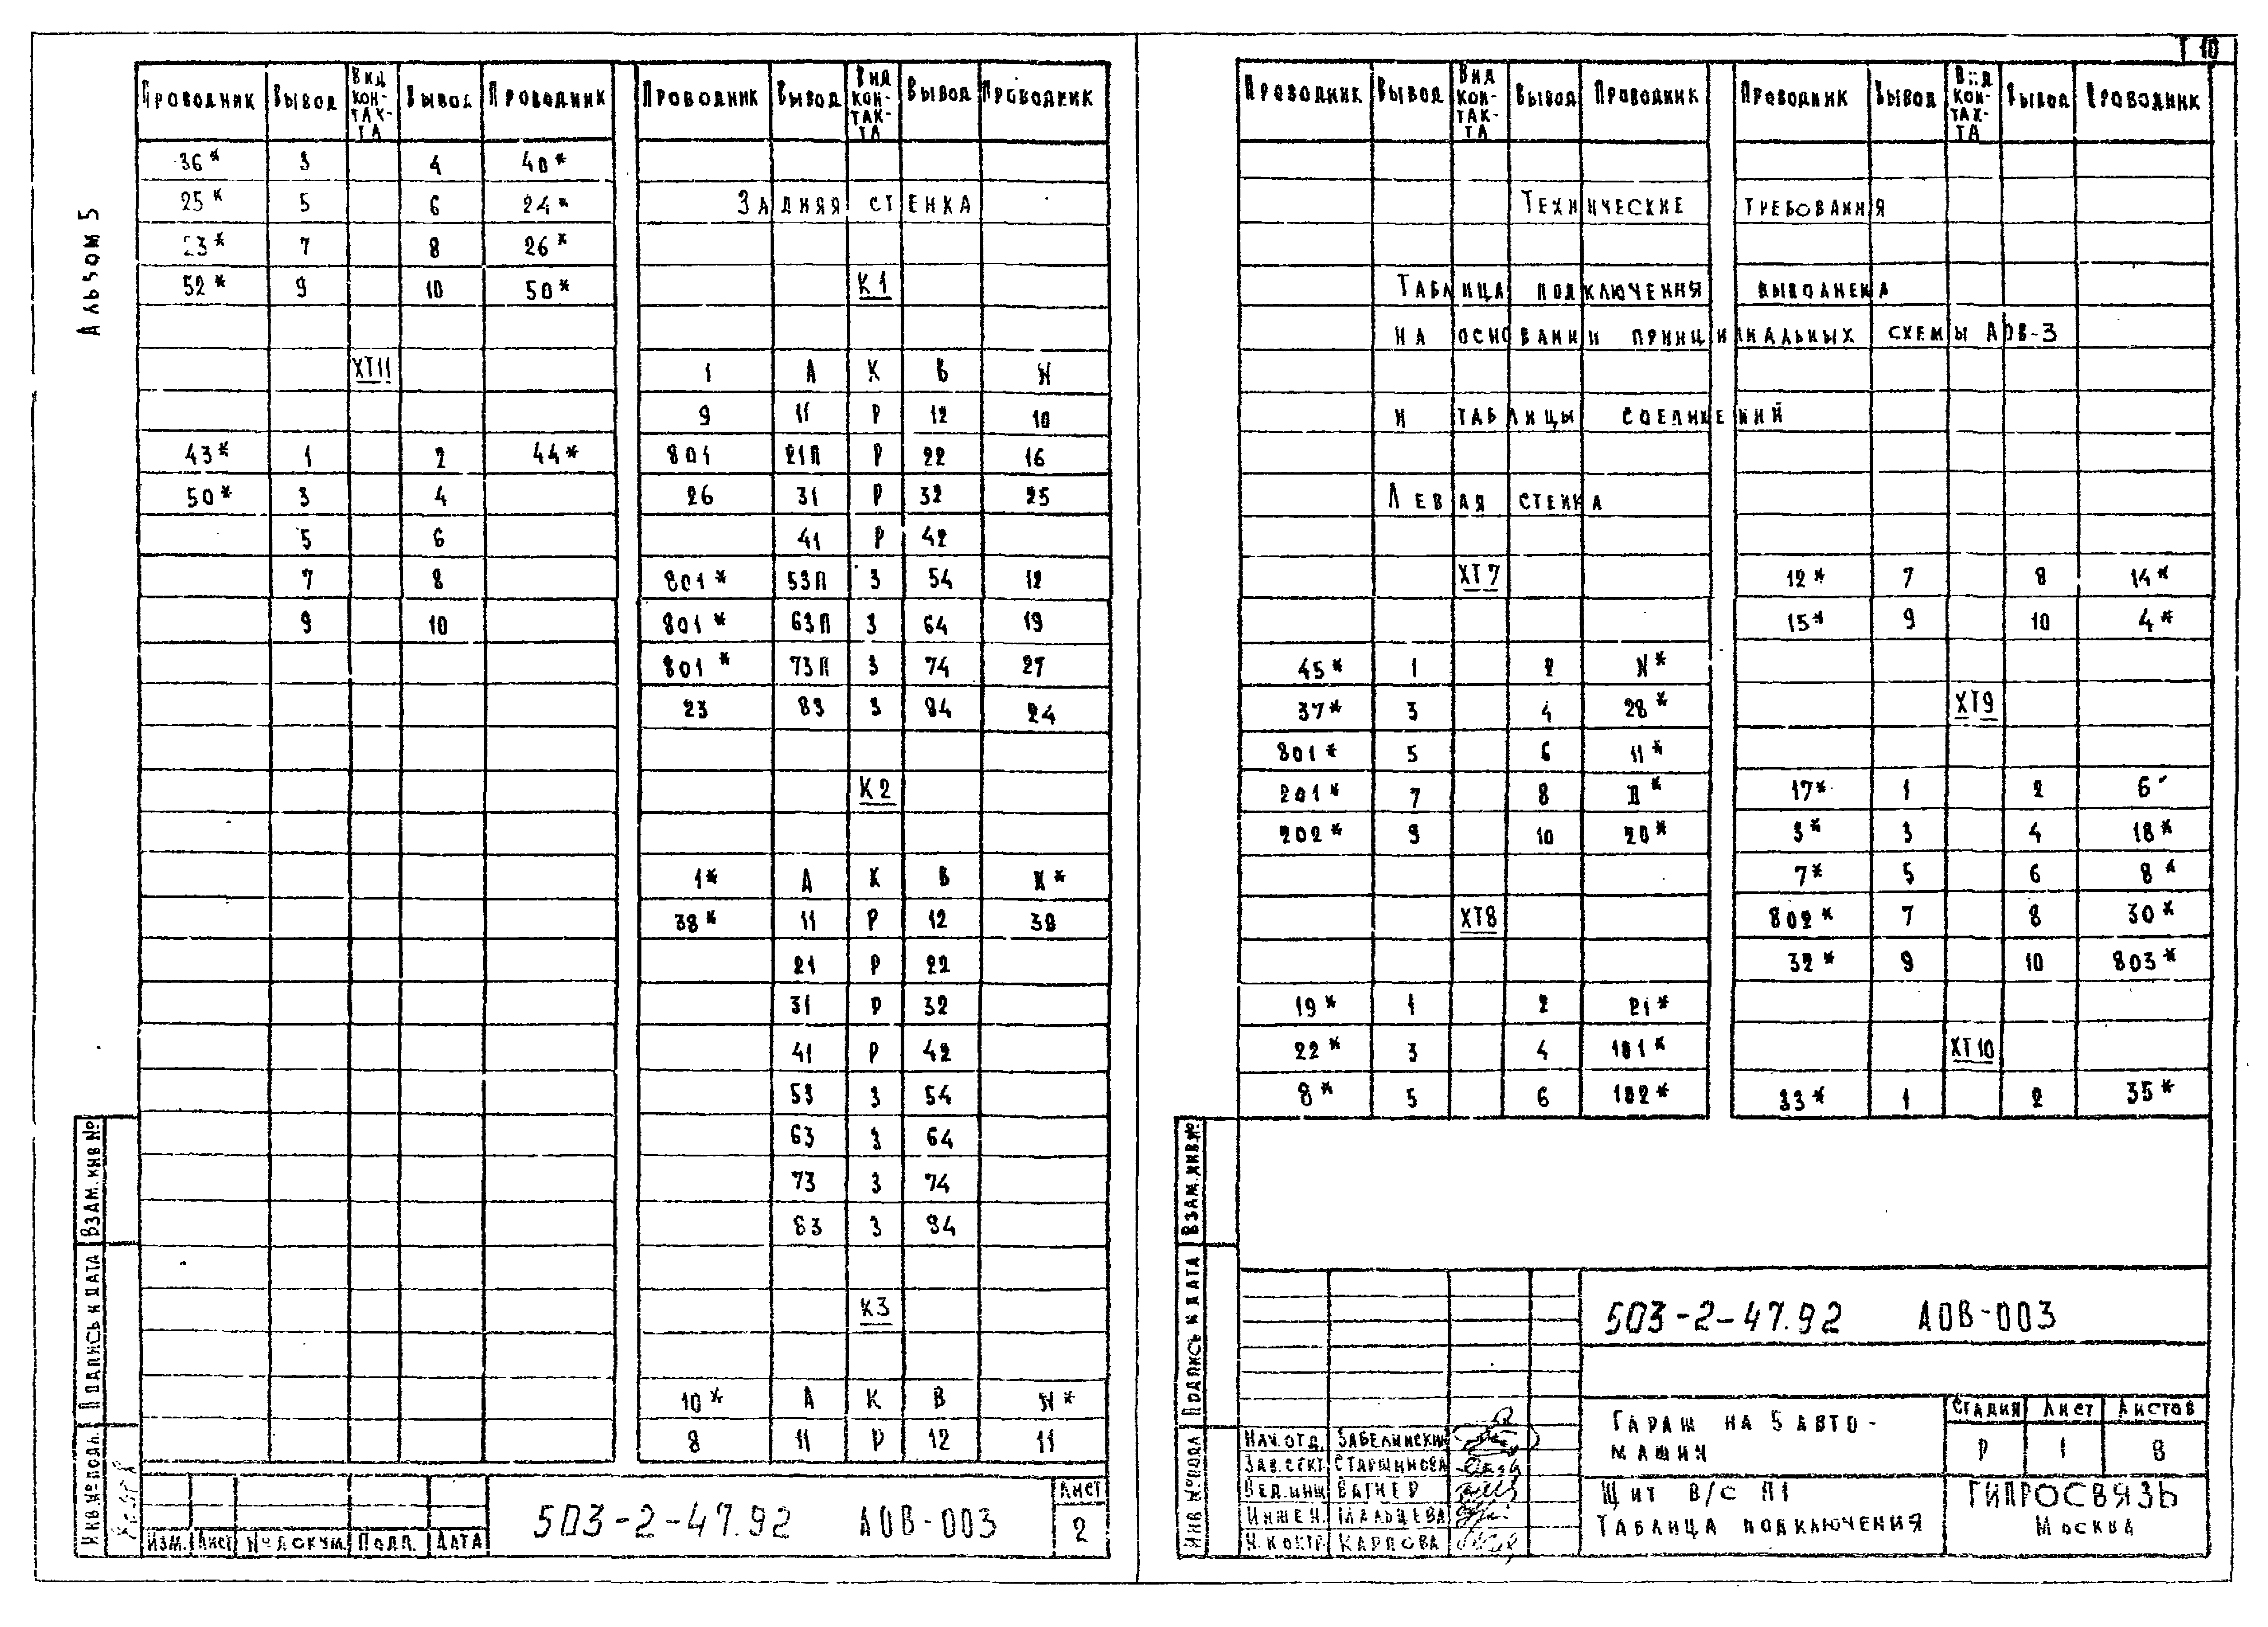 Альбом 5
Проводник Вывод Вид контакта Вывод Проводник
36* 3 4 40*
25* 5 6 24*
23* 7 8 26*
52* 9 10 50*
ХТ11
43* 1 2 44*
50* 3 4
5 6
7 8
9 10
Проводник Вывод Вид контакта Вывод Проводник
Задняя стенка
К1
1 А К В N
9 11 Р 12 10
801 21П Р 22 16
26 31 Р 32 25
41 Р 42
801* 53П З 54 12
801* 63П З 64 19
801* 73П З 74 27
23 83 З 84 24
К2
1* А К В N*
38* 11 Р 12 39
21 Р 22
31 Р 32
41 Р 42
53 З 54
63 З 64
73 З 74
83 З 84
К3
10* А К В N*
8 11 Р 12 11
Взам. инв №
Подпись и дата
Инв № подл.
Изм. Лист № докум. Подп. Дата
503-2-47.92 АОВ-003
Лист
2
10
Проводник Вывод Вид контакта Вывод Проводник
Проводник Вывод Вид контакта Вывод Проводник
Технические требования
Таблица подключения выполнена
на основании принципиальных схемы АОВ-3
и таблицы соединений
Левая стенка
ХТ7
45* 1 2 N*
37* 3 4 28*
801* 5 6 11*
201* 7 8 П*
202* 9 10 20*
ХТ8
19* 1 2 21*
22* 3 4 181*
8* 5 6 182*
12* 7 8 14*
15* 9 10 4*
ХТ9
17* 1 2 6*
3* 3 4 18*
7* 5 6 8*
802* 7 8 30*
32* 9 10 803*
ХТ10
33* 1 2 35*
Взам. инв. №
Подпись и дата
Инв № подл
503-2-47.92 АОВ-003
Нач. отд. Забелинский
Зав. сект. Старшинова
Вед. инж Вагнер
Инжен. Мальцева
Н. контр. Карпова
Гараж на 5 авто-
машин
Стадия Лист Листов
Р 1 8
Щит В/С П1
Таблица подключения
ГИПРОСВЯЗЬ
Москва